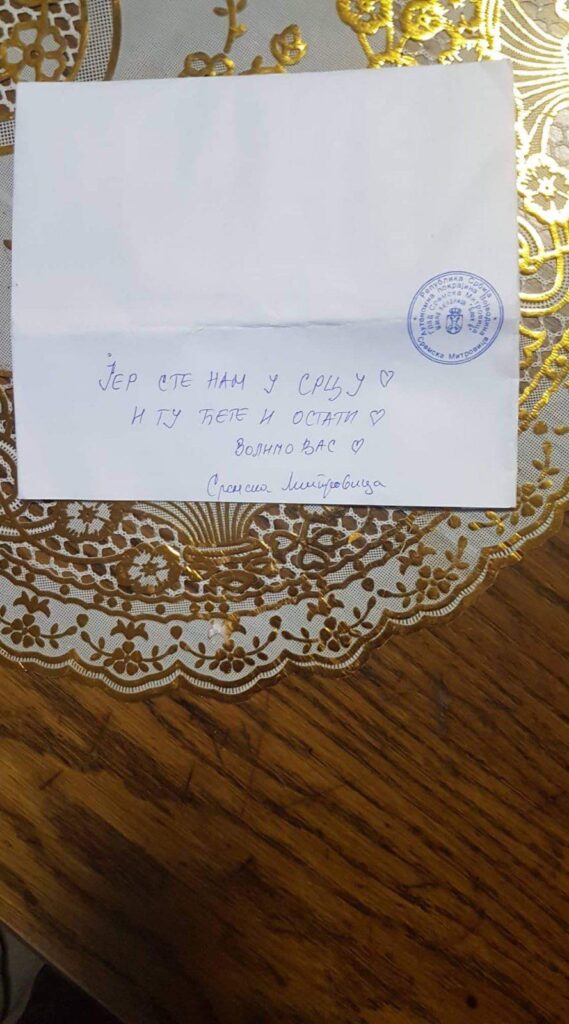 Република Србија
Аутономна Покрајина Војводина
Град Сремска Митровица
Сремска Митровица
ЈЕР СТЕ НАМ У СРЦУ ♡
И ТУ ЋЕТЕ И ОСТАТИ ♡
ВОЛИМО ВАС ♡
Сремска Митровица